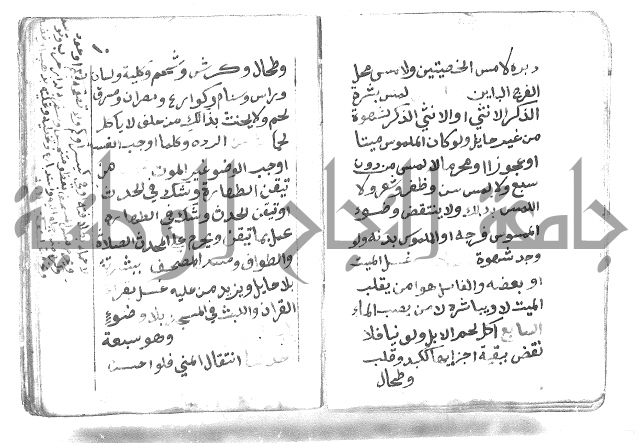 دبره لا مس الخصيتين ولا مس محل
الفرج الباين لمس بشرة
الذكر الانثى او الانثى الذكر لشهوة
من غير حايل ولو كان الملموس ميتا
او عجوزا او محرما لا لمس من دون
سبع ولا لمس سن وظفر وشعر ولا
اللمس بذلك ولا ينتقض وضوء
الممسوس فرجه او الملموس بدنه ولو
وجد شهوة غسل الميت
او بعضه والغاسل هو من يقلب
الميت لا ويباشره لا من يصب الماء
السابع اكل لحم الابل ولو نيا فلا
نقض ببقية اجزايه ككبد وقلب
وطحال
١٠
وطحال وكرش وشحم وكلية ولسان
وراس وسنام وكوارع ومصران ومرق
لحم ولا يحنث بذلك من حلف لا ياكل
لحما الرده وكلما اوجب الغسل
اوجب الوضوء غير الموت من
تيقن الطهارة وشك في الحدث
او تيقن الحدث وشك في الطهارة
عمل بما تيقن ويحرم على المحدث الصلاة
والطواف ومس المصحف ببشرته
بلا حايل ويزيد من عليه غسل بقراءة
القران واللبث في المسجد بلا وضوء
وهو سبعة
انتقال المني فلو احس
جامعة النجاح الوطنية